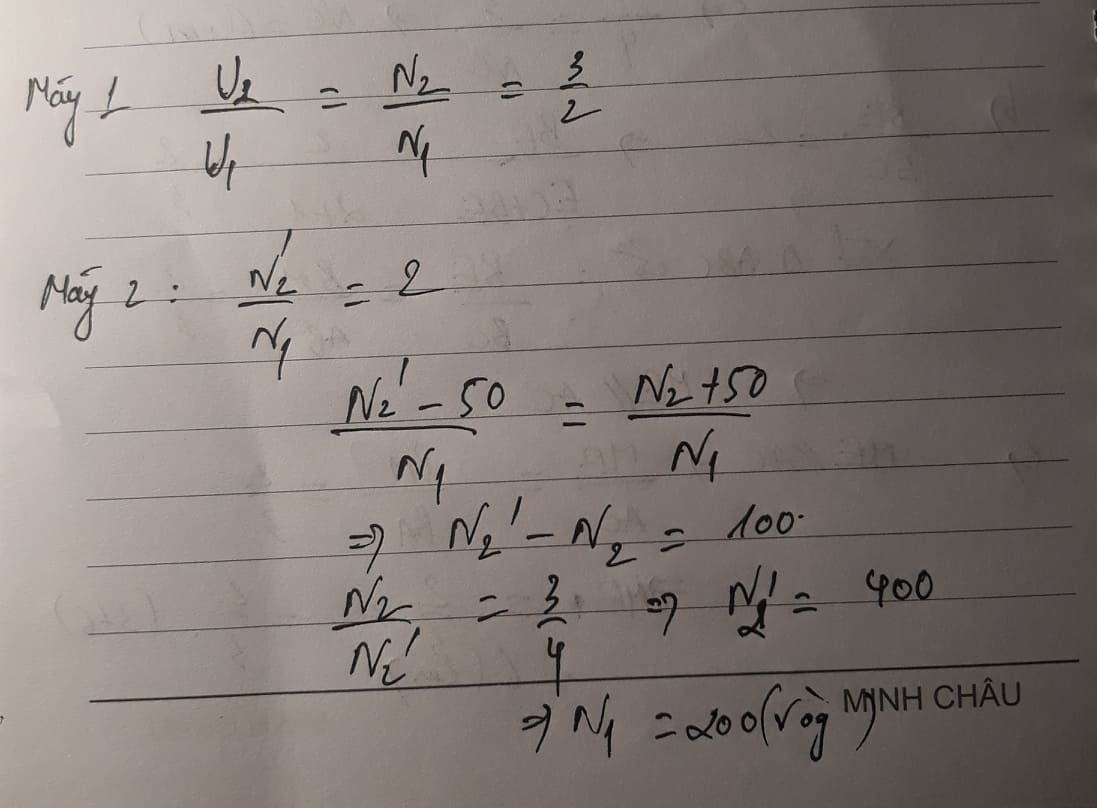 Máy 1 U2/U1 = N2/N1 = 3/2
Máy 2 : N2'/N1 = 2
(N2' - 50)/N1 = (N2 + 50)/N1
⇒ N2' - N2 = 100
N2/N2' = 3/4 ⇒ N2' = 400
⇒ N1 = 200 (vòg)
MINH CHÂU